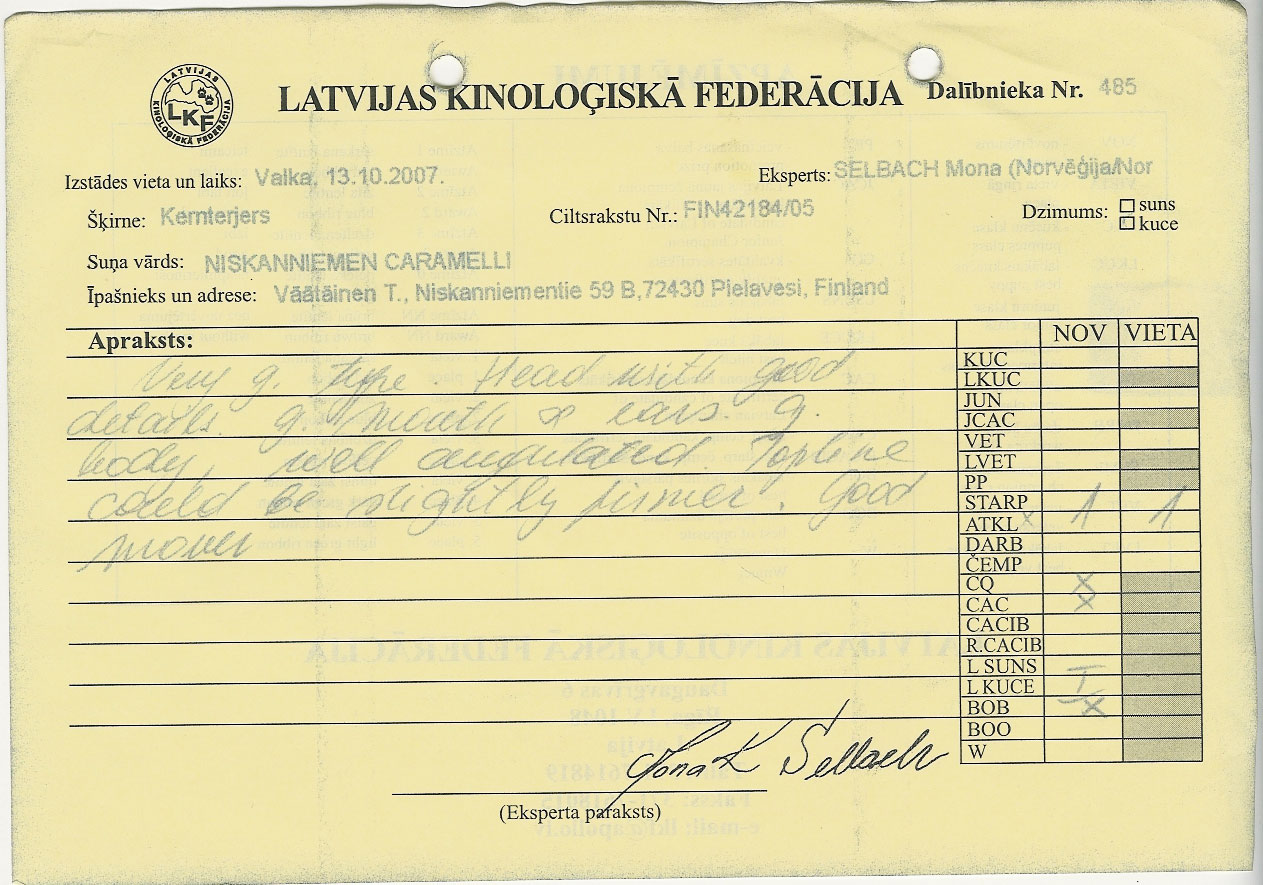 LATVIJAS KINOLOĢISKĀ FEDERĀCIJA
LKF
LATVIJAS KINOLOĢISKĀ FEDERĀCIJA Dalībnieka Nr. 485
Izstādes vieta un laiks: Valka, 13.10.2007. Eksperts: SELBACH Mona (Norvēģija/Nor
Šķirne: Kernterjers Ciltsrakstu Nr.: FIN42184/05 Dzimums: suns
kuce
Suņa vārds: NISKANNIEMEN CARAMELLI
Īpašnieks un adrese: Väätäinen T., Niskanniementie 59 B,72430 Pielavesi, Finland
Apraksts: NOV VIETA
Very g. type Head with good
details. g. mouth & ears. g.
body, well angulated. Topline
could be slightly firmer. Good
mover
KUC
LKUC
JUN
JCAC
VET
LVET
PP
STARP
ATKL x 1 1
DARB
ČEMP
CQ X
CAC X
CACIB
R.CACIB
L SUNS
L KUCE I
BOB X
BOO
W
Mona K Selbach
(Eksperta paraksts)